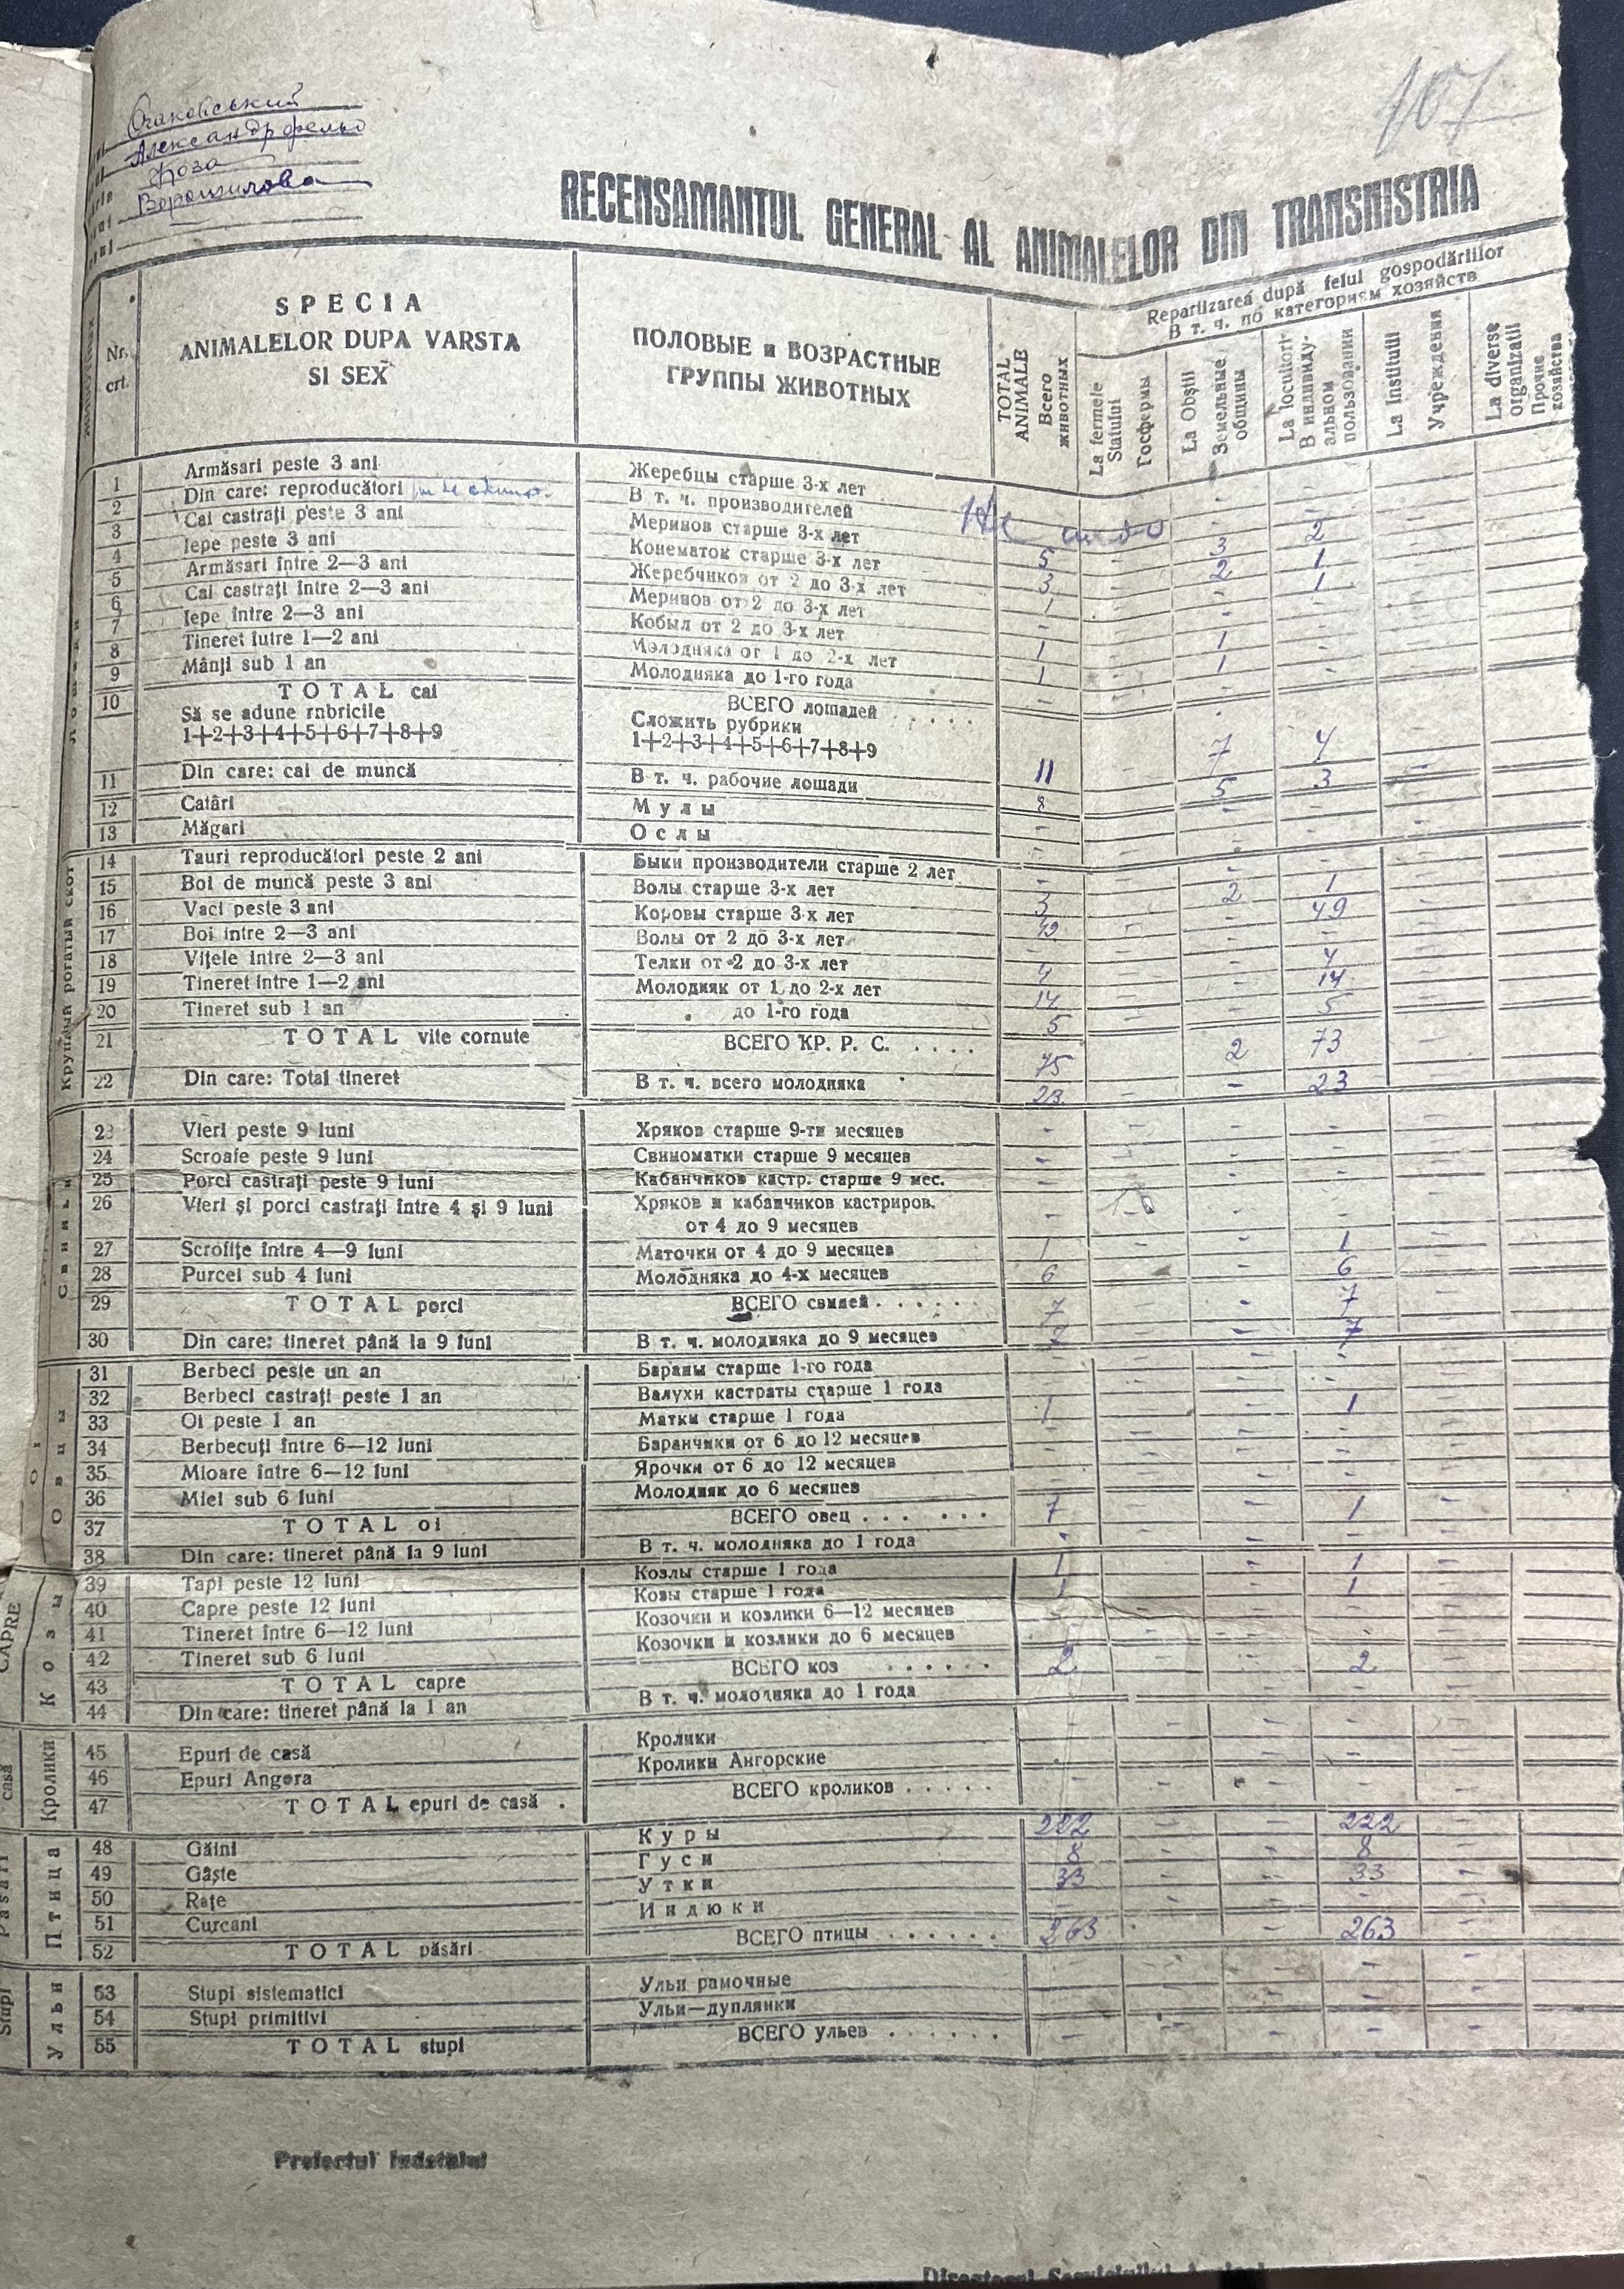 107
Очаковський
Александрфельд
Коза
Ворошилова
RECENSAMANTUL GENERAL AL ANIMALELOR DIN TRANSNISTRIA
Nr. crt.
SPECIA
ANIMALELOR DUPA VARSTA
SI SEX
ПОЛОВЫЕ и ВОЗРАСТНЫЕ
ГРУППЫ ЖИВОТНЫХ
TOTAL ANIMALE Всего животных
Repartizarea după felul gospodăriilor
В т. ч. по категориям хозяйств
La fermele Statului Госфермы
La Obștii Земельные общины
La locuitori В индивидуальном пользовании
La Institutii Учреждения
La diverse organizatii Прочие хозяйства
1 Armăsari peste 3 ani Жеребцы старше 3-х лет
2 Din care: reproducători В т. ч. производителей
3 Cai castrați peste 3 ani Меринов старше 3-х лет 5 - 3 2
4 Iepe peste 3 ani Конематок старше 3-х лет 3 - 2 1
5 Armăsari între 2—3 ani Жеребчиков от 2 до 3-х лет 1 - - 1
6 Cai castrați între 2—3 ani Меринов от 2 до 3-х лет - - - -
7 Iepe între 2—3 ani Кобыл от 2 до 3-х лет 1 - 1 -
8 Tineret iutre 1—2 ani Молодняка от 1 до 2-х лет 1 - 1 -
9 Mânji sub 1 an Молодняка до 1-го года - - - -
10 TOTAL cai ВСЕГО лошадей . . . . .
Să se adune rnbricile Сложить рубрики
1+2+3+4+5+6+7+8+9 1+2+3+4+5+6+7+8+9 11 - 7 4
11 Din care: cai de muncă В т. ч. рабочие лошади 8 - 5 3 -
12 Catâri Мулы - - - -
13 Măgari Ослы - - - -
Крупный рогатый скот
14 Tauri reproducători peste 2 ani Быки производители старше 2 лет - - - -
15 Boi de muncă peste 3 ani Волы старше 3-х лет 3 - 2 1
16 Vaci peste 3 ani Коровы старше 3-х лет 49 - - 49
17 Boi intre 2—3 ani Волы от 2 до 3-х лет - - - -
18 Vițele între 2—3 ani Телки от 2 до 3-х лет 4 - - 4
19 Tineret intre 1—2 ani Молодняк от 1 до 2-х лет 14 - - 14
20 Tineret sub 1 an до 1-го года 5 - - 5
21 TOTAL vite cornute ВСЕГО КР. Р. С. . . . . 75 2 73
22 Din care: Total tineret В т. ч. всего молодняка 23 - - 23 -
Свиньи
23 Vieri peste 9 luni Хряков старше 9-ти месяцев - - - -
24 Scroafe peste 9 luni Свиноматки старше 9 месяцев - - - -
25 Porci castrați peste 9 luni Кабанчиков кастр. старше 9 мес. - - - -
26 Vieri și porci castrați între 4 și 9 luni Хряков и кабанчиков кастриров.
от 4 до 9 месяцев - - -
27 Scrofițe între 4—9 luni Маточки от 4 до 9 месяцев 1 - - 1
28 Purcei sub 4 luni Молодняка до 4-х месяцев 6 - 6
29 TOTAL porci ВСЕГО свиней . . . . . . 7 - 7
30 Din care: tineret până la 9 luni В т. ч. молодняка до 9 месяцев 7 - - 7
Овцы
31 Berbeci peste un an Бараны старше 1-го года - - - -
32 Berbeci castrați peste 1 an Валухи кастраты старше 1 года - - - -
33 Oi peste 1 an Матки старше 1 года 1 - - 1
34 Berbecuți între 6—12 luni Баранчики от 6 до 12 месяцев - - - -
35 Mioare între 6—12 luni Ярочки от 6 до 12 месяцев - - - -
36 Miei sub 6 luni Молодняк до 6 месяцев - - - -
37 TOTAL oi ВСЕГО овец . . . . . . 1 - - 1 -
38 Din care: tineret până la 9 luni В т. ч. молодняка до 1 года - - - -
CAPRE Козы
39 Tapi peste 12 luni Козлы старше 1 года 1 - - 1 -
40 Capre peste 12 luni Козы старше 1 года 1 - - 1 -
41 Tineret între 6—12 luni Козочки и козлики 6—12 месяцев - - - -
42 Tineret sub 6 luni Козочки и козлики до 6 месяцев - - - -
43 TOTAL capre ВСЕГО коз . . . . . . 2 - - 2 -
44 Din care: tineret până la 1 an В т. ч. молодняка до 1 года - - - -
casă Кролики
45 Epuri de casă Кролики - - - -
46 Epuri Angora Кролики Ангорские - - - -
47 TOTAL epuri de casă . ВСЕГО кроликов . . . . . - - - -
Păsări Птица
48 Găini Куры 222 - - 222
49 Gâște Гуси 8 - - 8
50 Rațe Утки 33 - - 33 -
51 Curcani Индюки - - - -
52 TOTAL păsări ВСЕГО птицы . . . . . . . 263 - - 263
Stupi Ульи
53 Stupi sistematici Ульи рамочные - - - -
54 Stupi primitivi Ульи—дуплянки - - - -
55 TOTAL stupi ВСЕГО ульев . . . . . . - - - -
Prefectul Judetului
Directorul Serviciului